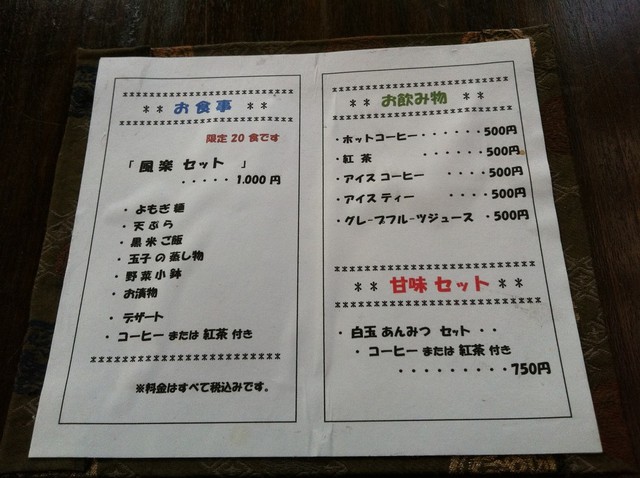 ** お食事 **
限定20食です
「 風楽 セット 」
・・・・・ 1.000円
・ よもぎ麺
・ 天ぷら
・ 黒米ご飯
・ 玉子の蒸し物
・ 野菜小鉢
・ お漬物
・ デザート
・ コーヒー または 紅茶 付き
※料金はすべて税込みです。
** お飲み物 **
・ホットコーヒー・・・・・・500円
・紅 茶 ・・・・・・500円
・アイス コーヒー ・・・・500円
・アイス ティー ・・・・500円
・グレープフルーツジュース ・500円
** 甘味 セット **
・ 白玉 あんみつ セット ・・
・ コーヒー または 紅茶 付き
・・・・・・・・・750円